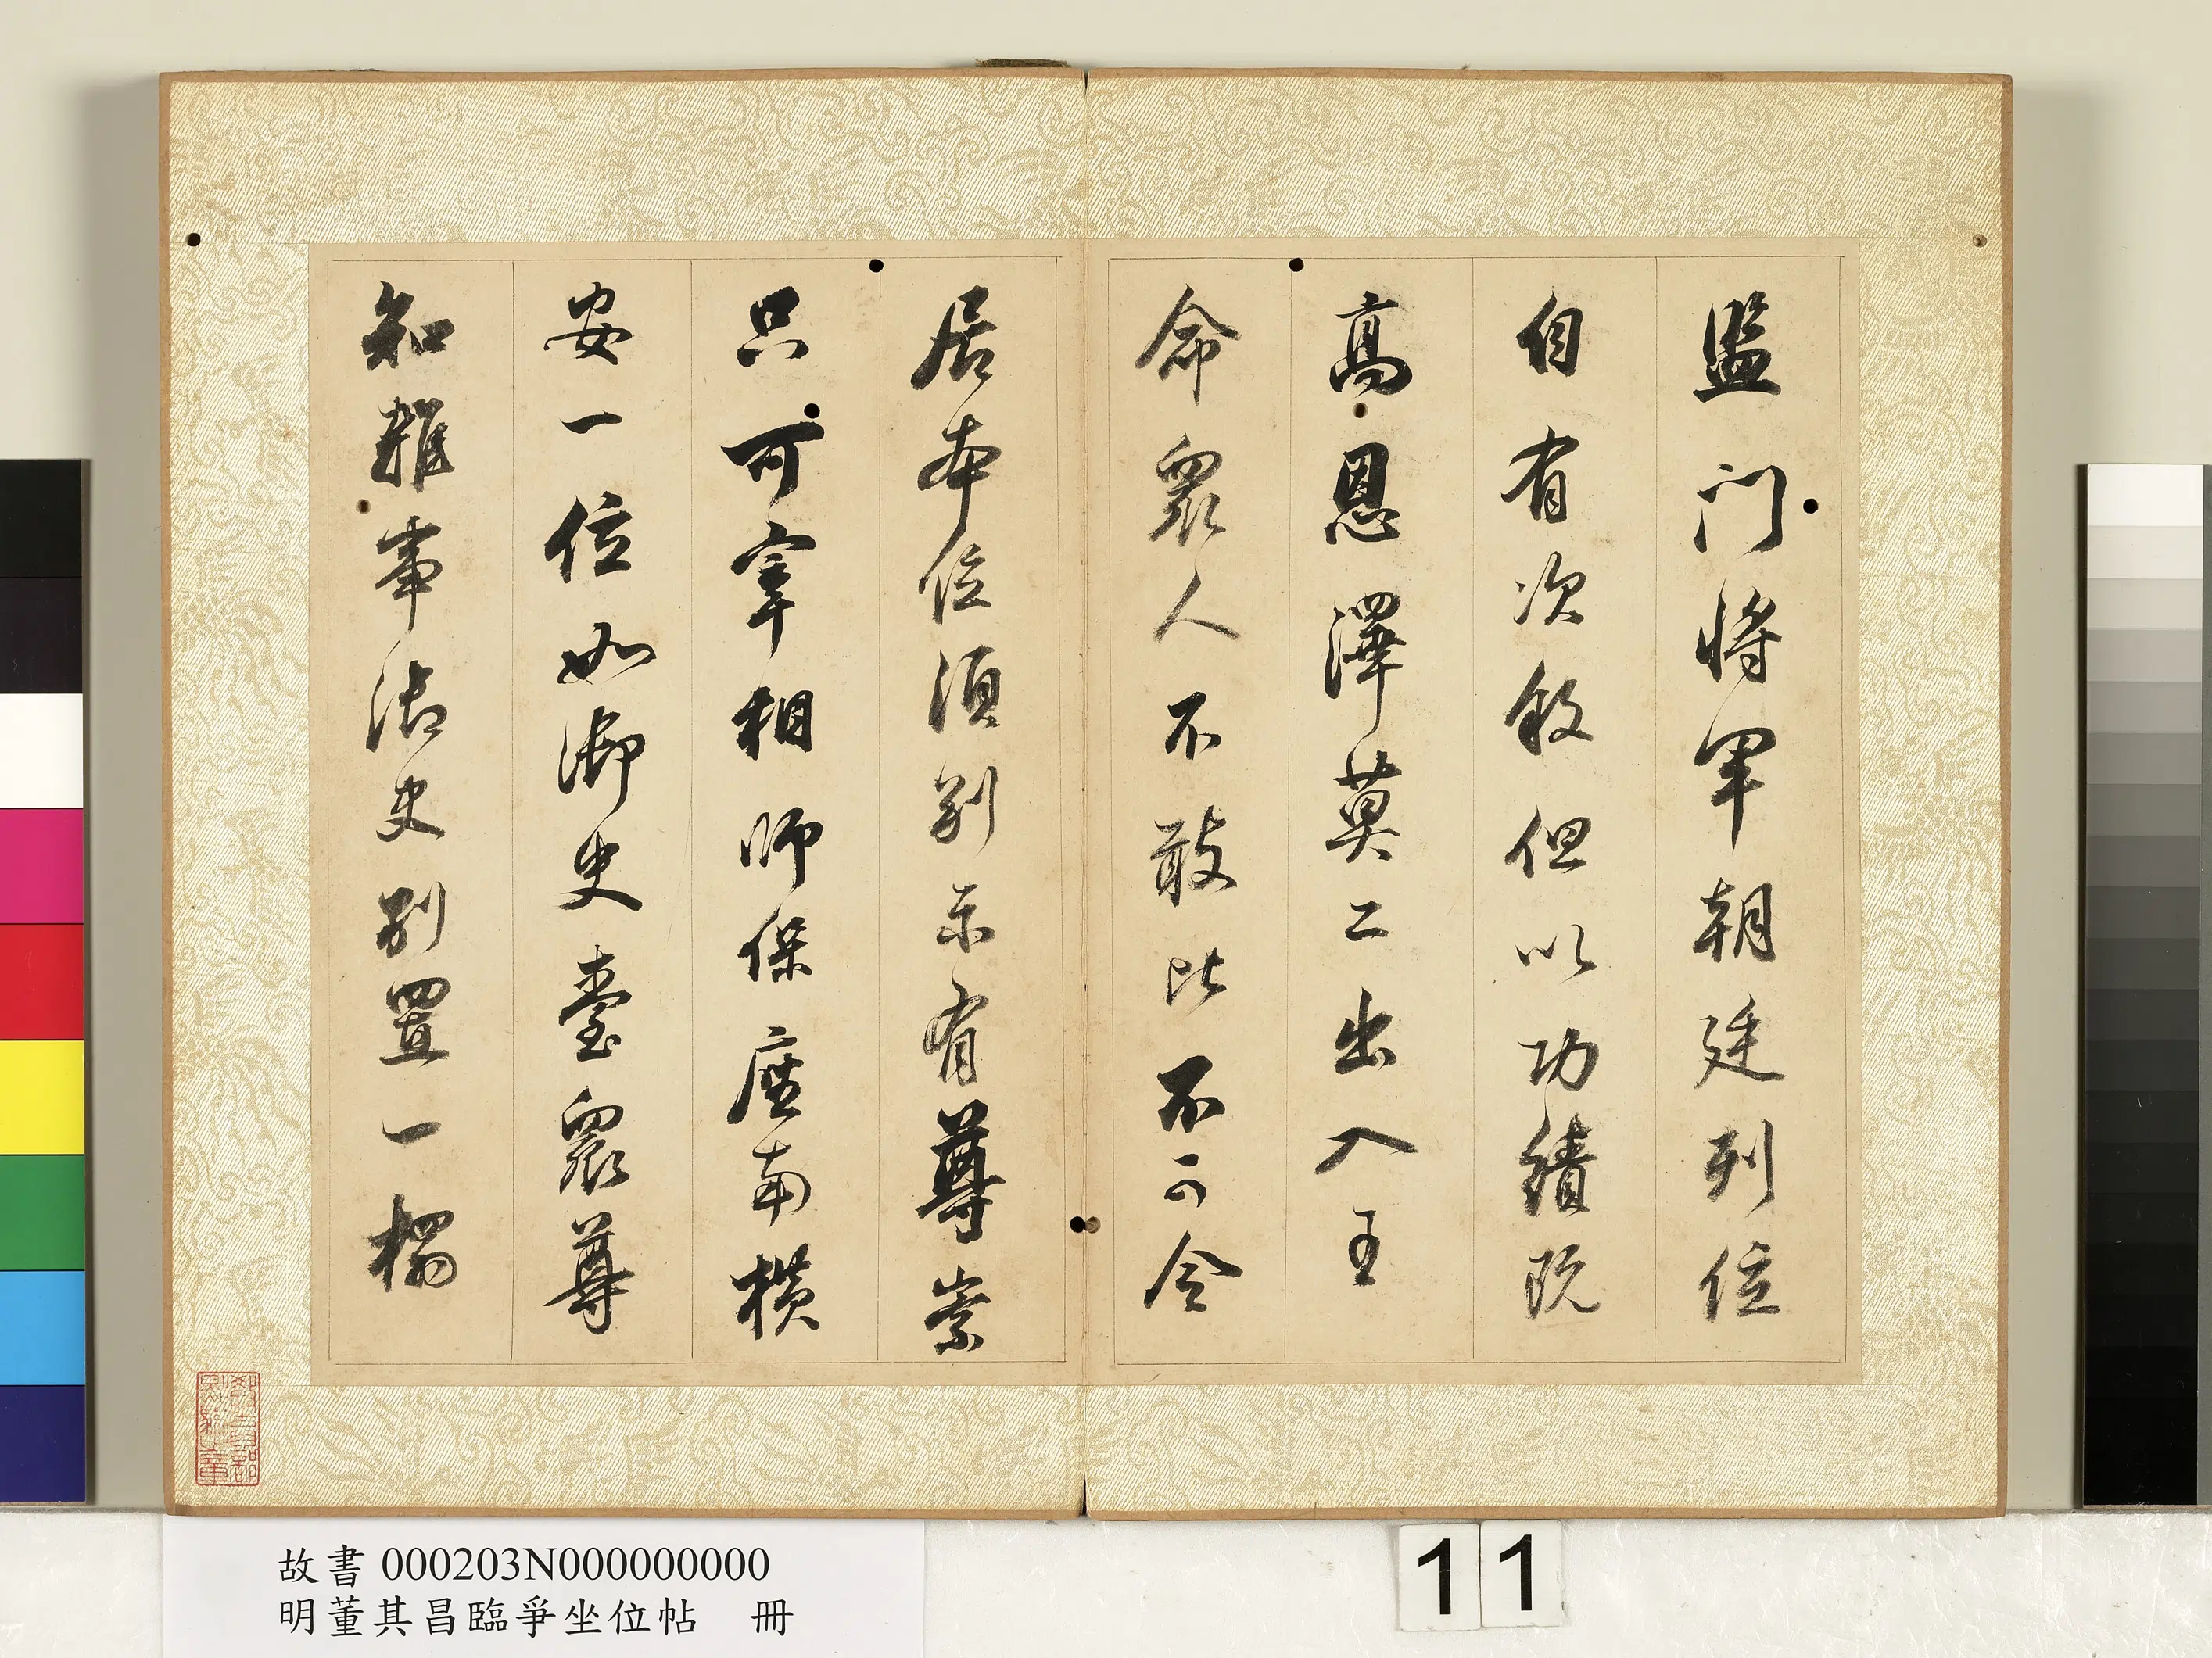 監門將軍朝廷列位
自有次敘但以功績既
高恩澤莫二出入王
命眾人不敢比不可令
居本位須別示有尊崇
只可宰相師保座南橫
安一位如御史臺眾尊
知雜事御史別置一榻
故書000203N000000000
明董其昌臨爭坐位帖 冊
11